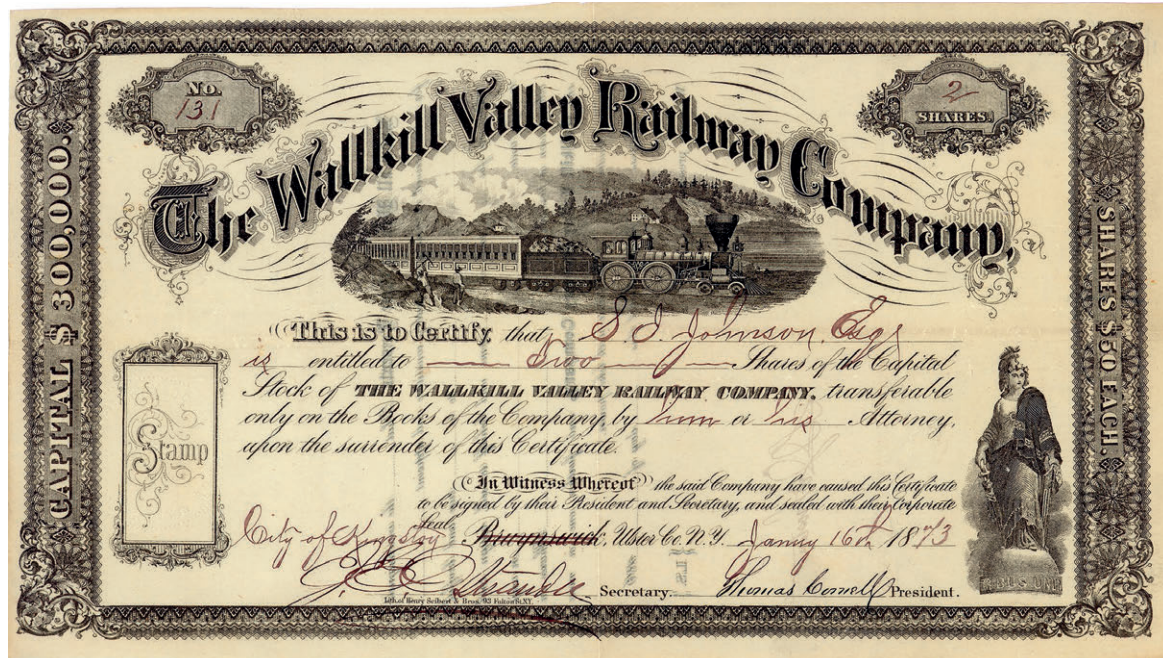 No.
131
2
SHARES.
The Wallkill Valley Railway Company,
CAPITAL $300,000.
SHARES $50 EACH.
This is to Certify, that S. D. Johnson Esqr
is entitled to Two Shares of the Capital
Stock of THE WALLKILL VALLEY RAILWAY COMPANY. transferable
only on the Books of the Company, by him or his Attorney,
upon the surrender of this Certificate.
Stamp
In Witness Whereof the said Company have caused this Certificate
to be signed by their President and Secretary, and sealed with their Corporate
Seal.
City of Ulster Co. N.Y. 16th 1873
Secretary. Thomas Cornell President.
Lith. of Henry Seibert & Bros. 93 Fulton St. N.Y.